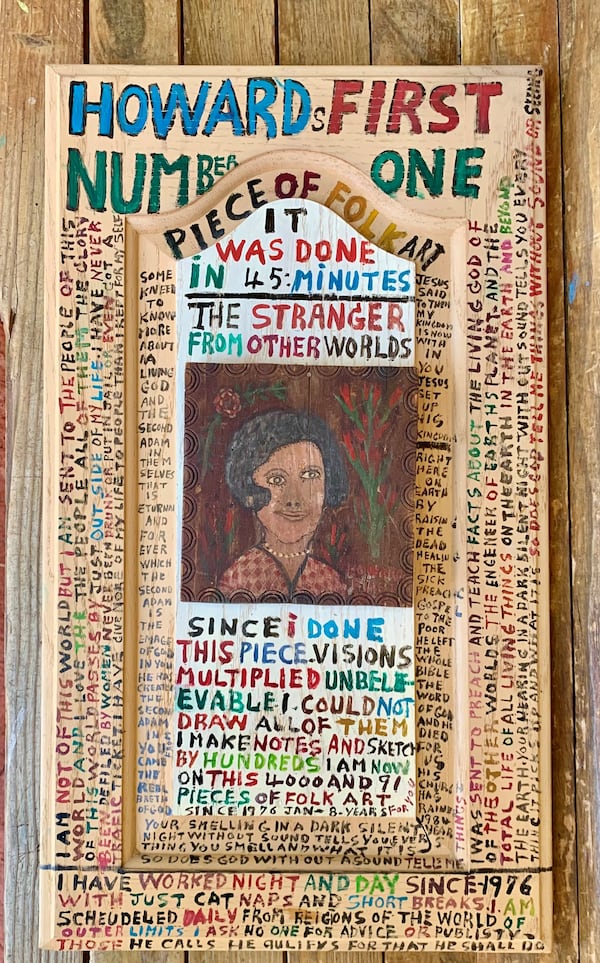 HOWARDs FIRST
NUMBER ONE
PIECE OF FOLK ART
IT
WAS DONE
iN 45:MiNUTES
THE STRANGER
FROM OTHER WORLDS
SINCE i DONE
THIS PIECE.VISIONS
MULTIPLIED UNBELE-
EVABLE.I.COULD NOT
DRAW ALL OF THEM
I MAKE NOTES AND SKETCH
BY HUNDREDS I AM NOW
ON THIS 4000 AND 91
PIECES OF FOLK ART
SINCE 1976 JAN-8-YEARS FOR YOU
SOME
KNEED
TO
KNOW
MORE
ABOUT
A
LIVING
GOD
AND
THE
SECOND
ADAM
IN
THEM
SELVES
THAT
IS
ETURNAL
AND
FOR
EVER
WHICH
THE
SECOND
ADAM
IS
THE
EMAGE
OF GOD
IN YOU
HE HAS
CREATED
THE
SECOND
ADAM
IN
YOU
CAME
THE
REAL
BREATH
OF GOD
JESUS
SAID
TO THEM
MY
KINGDOM
IS NOW
WITH
IN
YOU
JESUS
SET
UP
HIS
KINGDOM
RIGHT
HERE
ON
EARTH
BY
RAISIN
THE
DEAD
HEALIN
THE
SICK
PREACH
GOSPE
TO THE
POOR
HE LEFT
THE
WHOLE
BIBLE
THE
WORD
OF GOD
AND HE
DIED
FOR
US
HIS
CHURC
HAS
RAIN
1984 YRS
YOUR SMELLING IN A DARK SILENT
NIGHT WITHOUT SOUND TELLS YOU EVERY
THING YOU SMELL AND WHAT IT IS
SO DOES GOD WITH OUT A SOUND TELL ME
THINGS
I AM NOT OF THIS WORLD BUT I AM SENT TO THE PEOPLE OF THIS
WORLD AND I LOVE THE THE PEOPLE ALL OF THEM THE GLORY
OF THIS WORLD PASSES BY JUST OUT-SIDE OF MY LIFE I HAVE NEVER
BEEN DEFILED BY WOMEN NEVER BEEN DRUNK OR PUT IN JAIL OR EVEN GOT A
TRAFFIC TICKET I HAVE GIVE MORE OF MY LIFE TO PEOPLE THAN I KEPT FOR MY SELF
I WAS SENT TO PREACH AND TEACH FACTS ABOUT THE LIVING GOD OF
OF THE OTHER WORLDS THE ENGENEER OF EARTHS PLANET-AND THE
TOTAL LIFE OF ALL LIVING THINGS ON THE EARTH IN THE EARTH AND BEYOND
THE EARTH.YOUR HEARING IN A DARK SILENT NIGHT WITH OUT SOUND TELLS YOU EVERY
THIN IT PICKS UP AND WHAT IT IS SO DOES GOD TELL ME THINGS WITHOUT SOUND OR SEEING
I HAVE WORKED NIGHT AND DAY SINCE-1976
WITH JUST CAT NAPS AND SHORT BREAKS.I AM
SCHEUDELED DAILY FROM REIGIONS OF THE WORLD OF
OUTER LIMITS I ASK NO ONE FOR ADVICE OR PUBLISTY-
THOSE HE CALLS HE QULIFYS FOR THAT HE SHALL DO